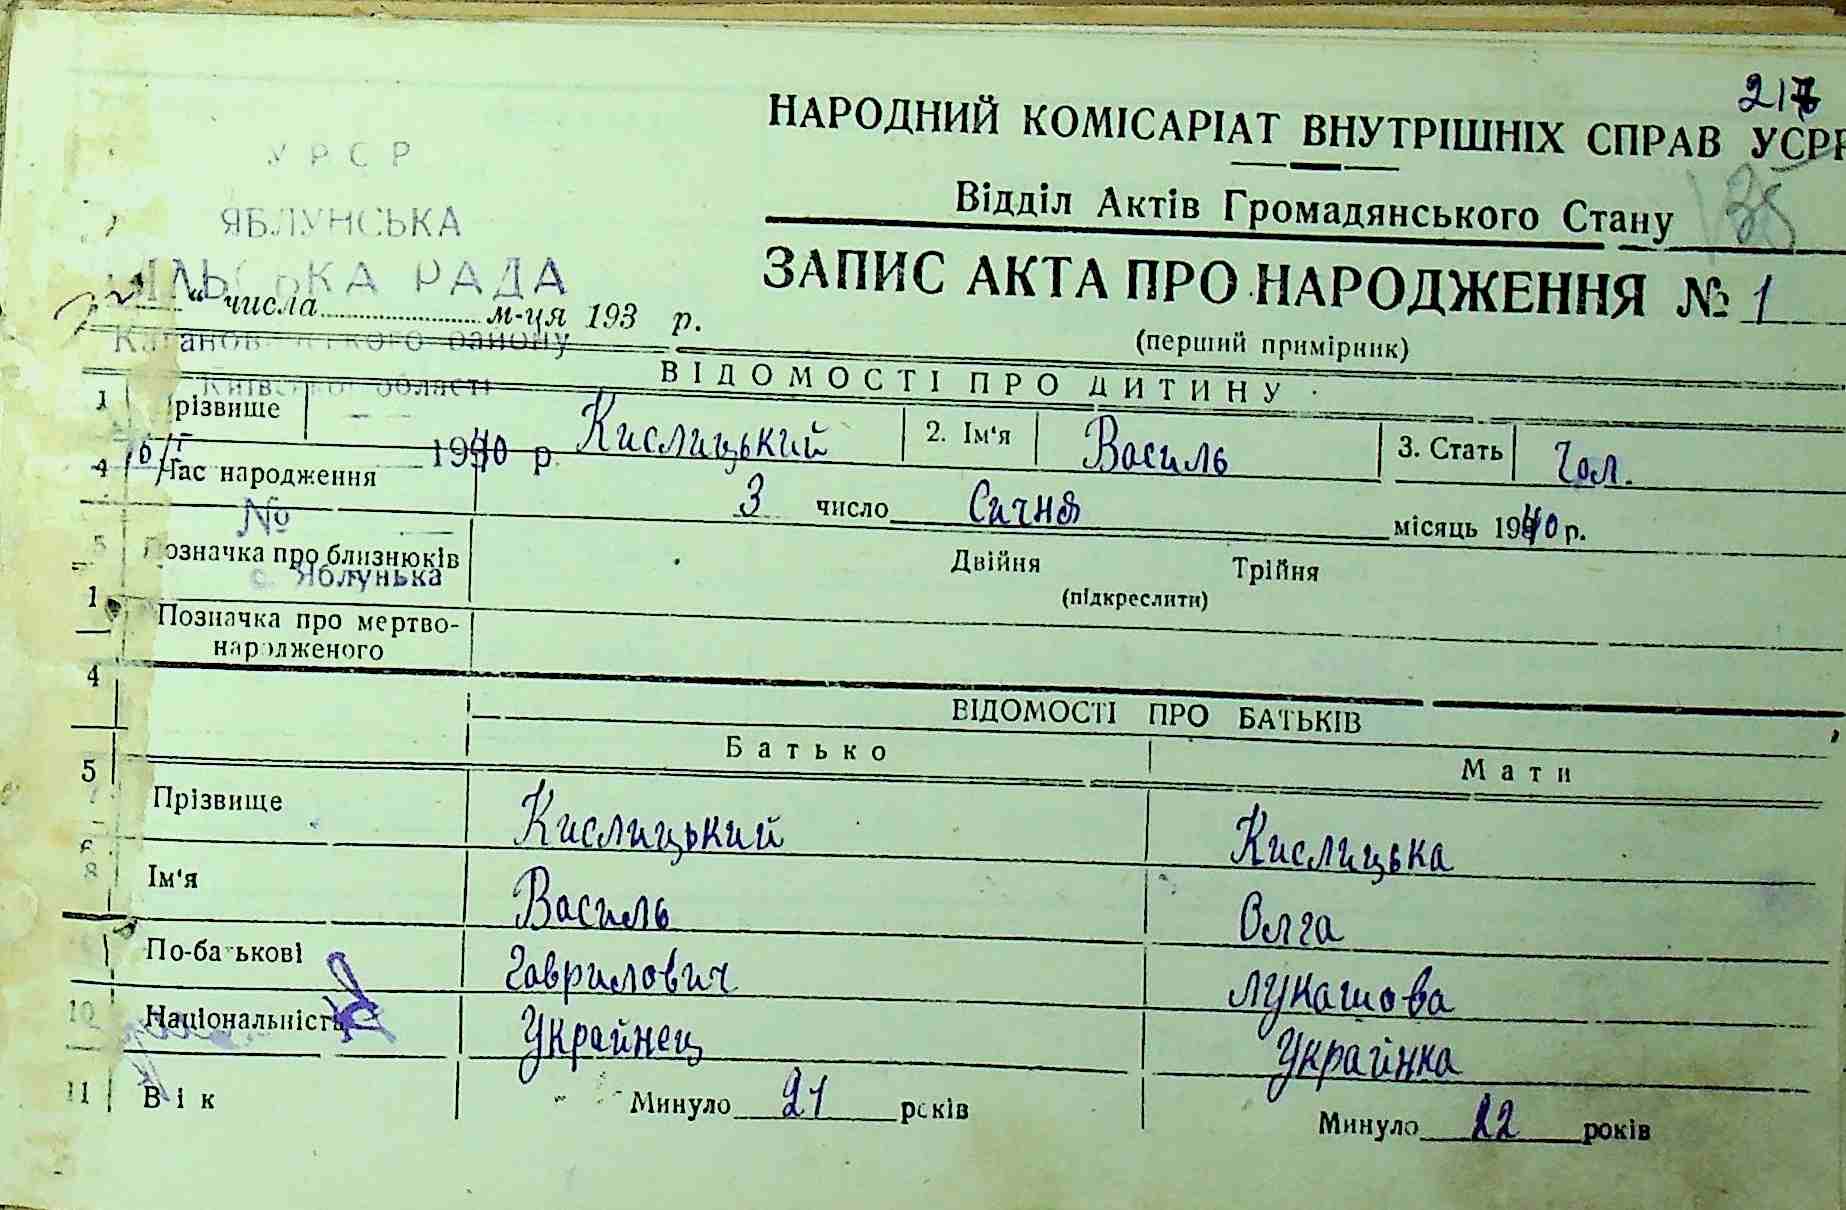 217
НАРОДНИЙ КОМІСАРІАТ ВНУТРІШНІХ СПРАВ УСРР
УРСР
Відділ Актів Громадянського Стану 125
ЯБЛУНСЬКА
СІЛЬСЬКА РАДА
ЗАПИС АКТА ПРО НАРОДЖЕННЯ № 1
(перший примірник)
“ числа м-ця 193 р.
Кагановичського району
Київської області
ВІДОМОСТІ ПРО ДИТИНУ
1 Прізвище Кислицький 2. Ім'я Василь 3. Стать Чол.
1940 р.
4 Час народження 3 число Січня місяць 1940 р.
№
5 Позначка про близнюків Двійня Трійня
с. Яблунька
(підкреслити)
Позначка про мертво-
народженого
ВІДОМОСТІ ПРО БАТЬКІВ
Батько Мати
Прізвище Кислицький Кислицька
8 Ім'я Василь Олга
По-батькові Гаврилович Лукашова
10 Національність Украйнец Украйнка
11 Вік Минуло 21 років Минуло 22 років